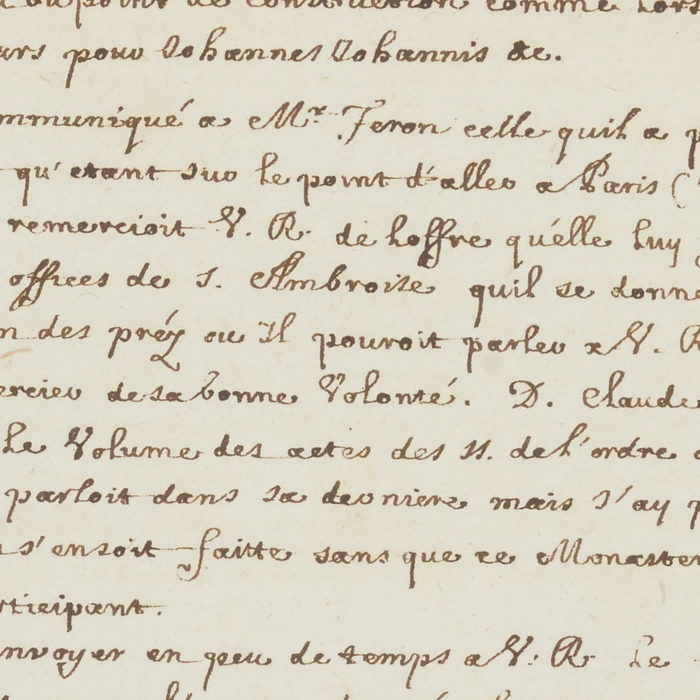 point de construction comme lors
urs pour Johannes Johannis &c.
mmuniqué a Mr. Feron celle quil a p
qu'etant sur le point d'aller a Paris (
remercioit V. R. de loffre qu'elle luy
offices de S. Ambroise quil se donne
n des préz ou Il pouroit parler a V. R
ercier de sa bonne Volonté. D. Claude
Le Volume des actes des SS. de l'ordre
parloit dans sa derniere mais j'ay p
s'en soit faitte sans que ce Monaster
rticipant.
nvoyer en peu de temps a V. R. le